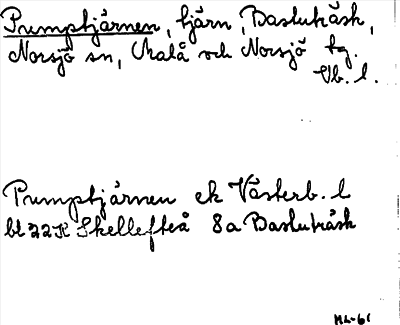 Pumptjärnen, tjärn, Bastuträsk,
Norsjö sn, Malå och Norsjö tg.
Vb. l.
Pumptjärnen ek Västerb. l
bl 22K Skellefteå 8a Bastuträsk
ML-61